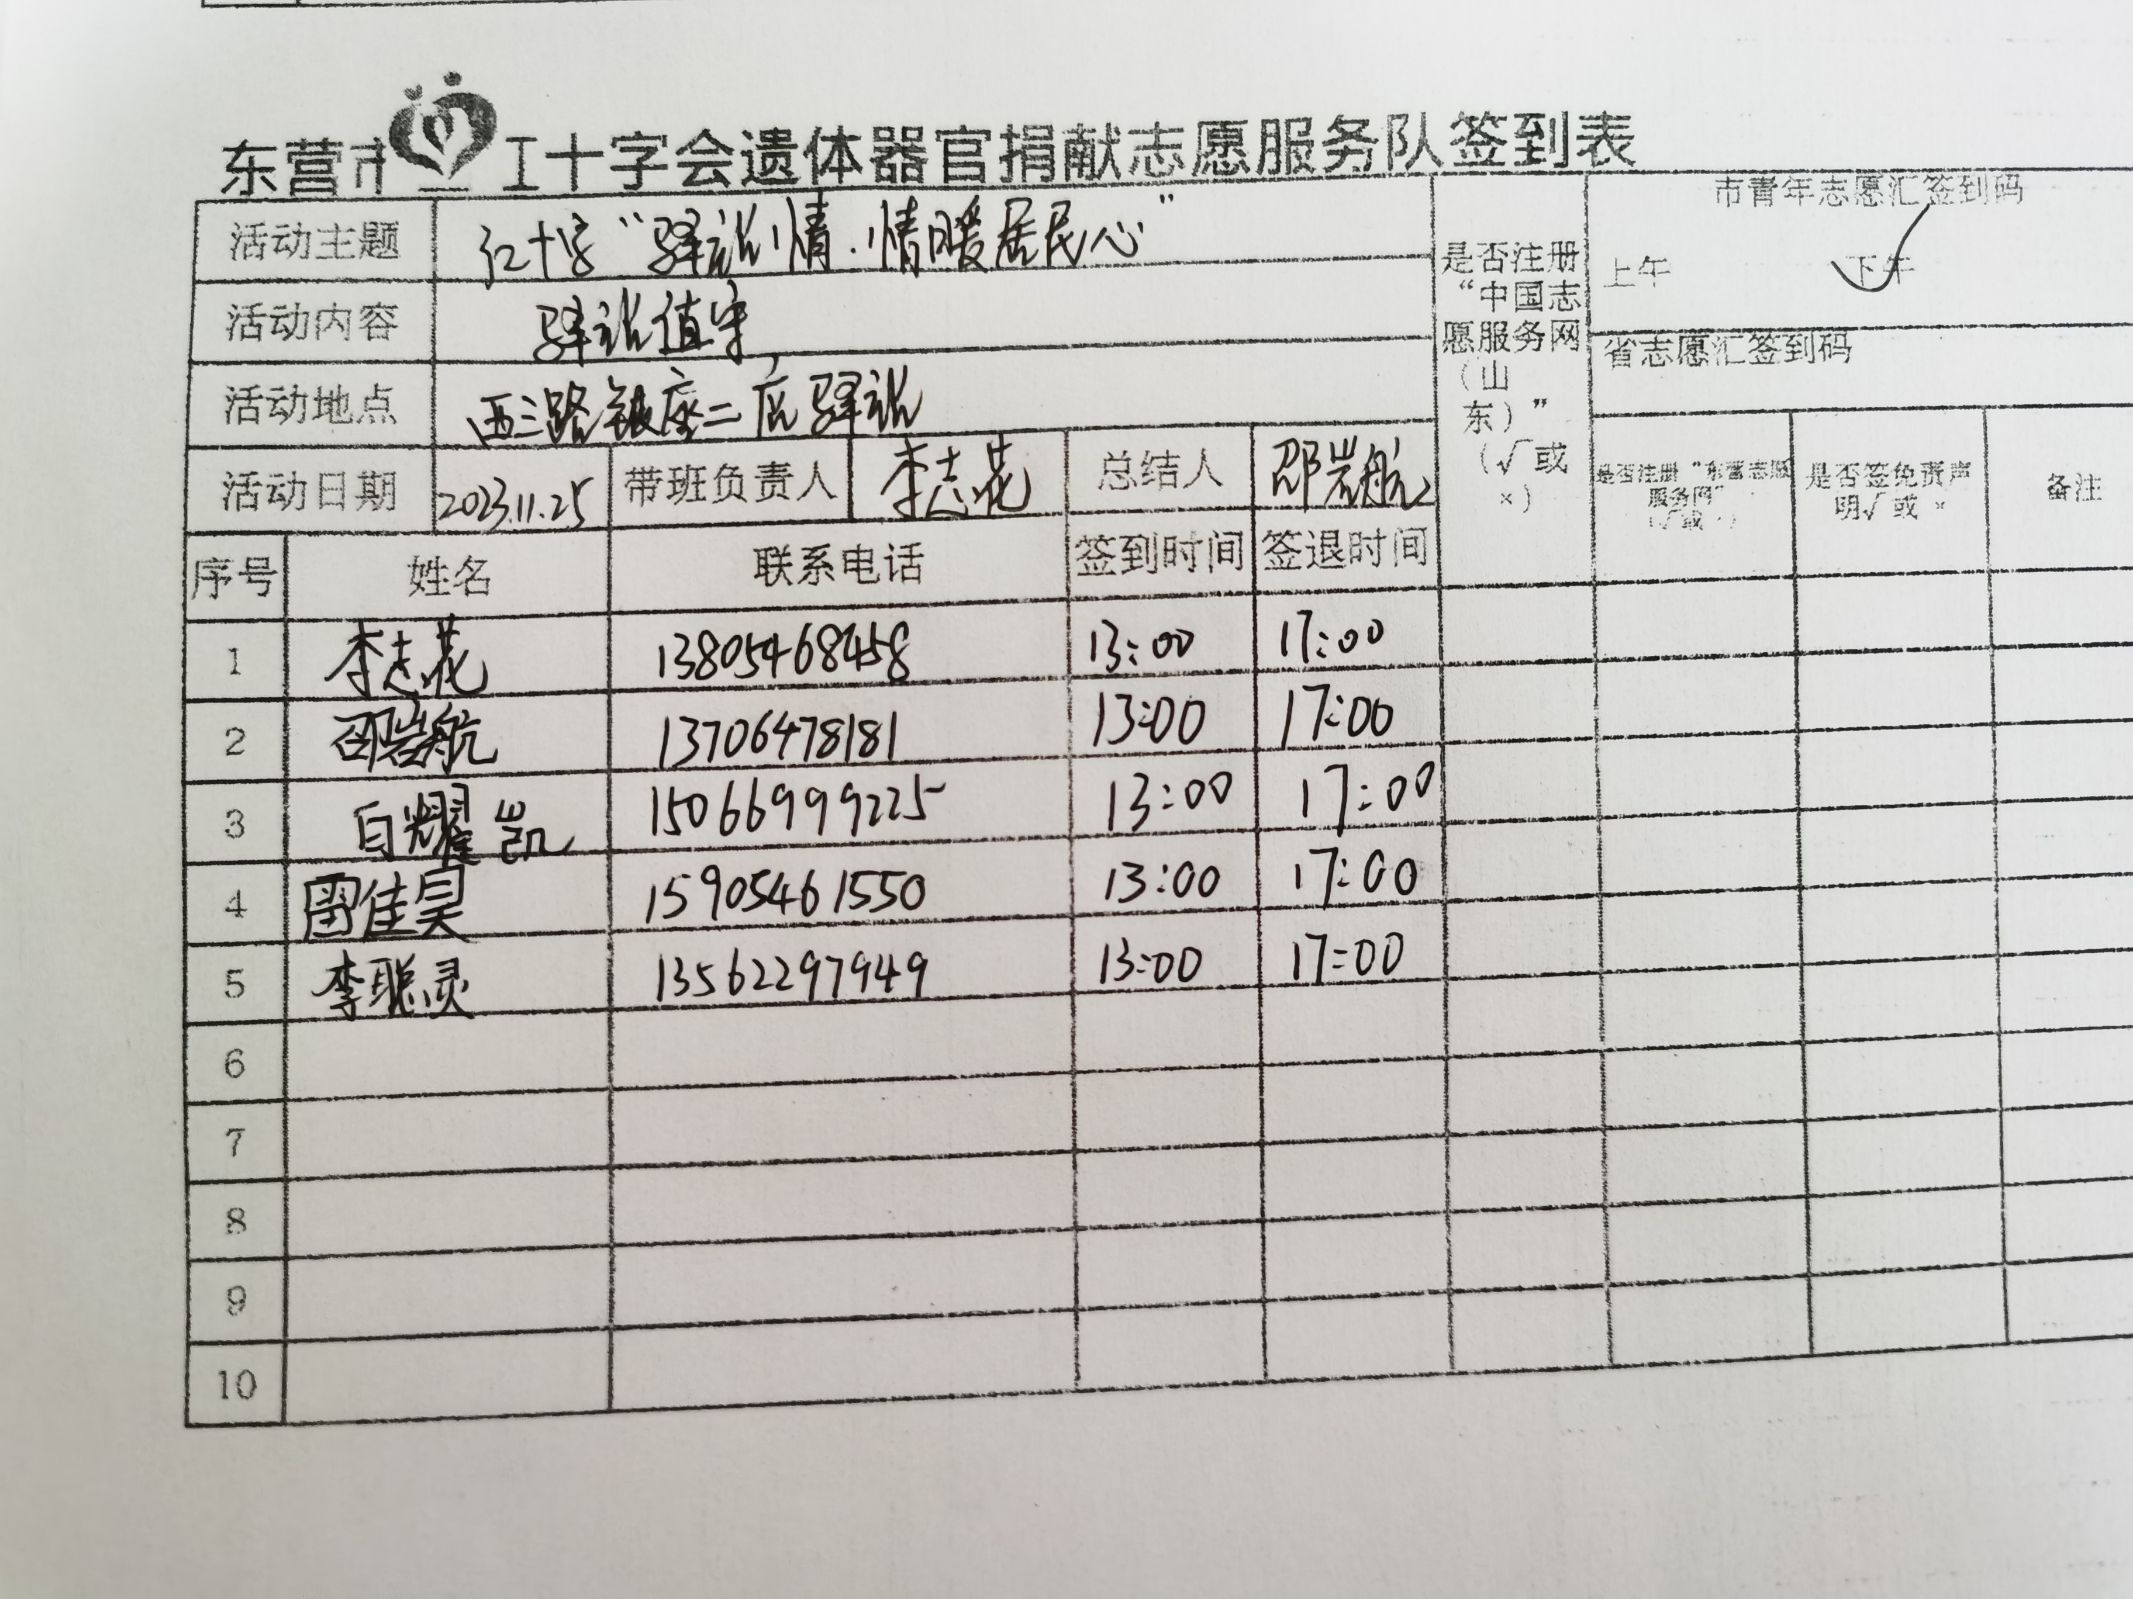 东营市 红十字会遗体器官捐献志愿服务队签到表
活动主题 红十字“驿站情·情暖居民心”
活动内容 驿站值守
活动地点 西三路银座二店驿站
活动日期 2023.11.25 带班负责人 李志花 总结人 邵岩航
是否注册“中国志愿服务网（山东）”（√或×）
市青年志愿汇签到码
上午 下午 ✓
省志愿汇签到码
是否注册“东营志愿服务网”（√或×） 是否签免责声明√或× 备注
序号 姓名 联系电话 签到时间 签退时间
1 李志花 13805468458 13:00 17:00
2 邵岩航 13706478181 13:00 17:00
3 白耀凯 15066999225 13:00 17:00
4 雷佳昊 15905461550 13:00 17:00
5 李聪灵 13562297949 13:00 17:00
6
7
8
9
10